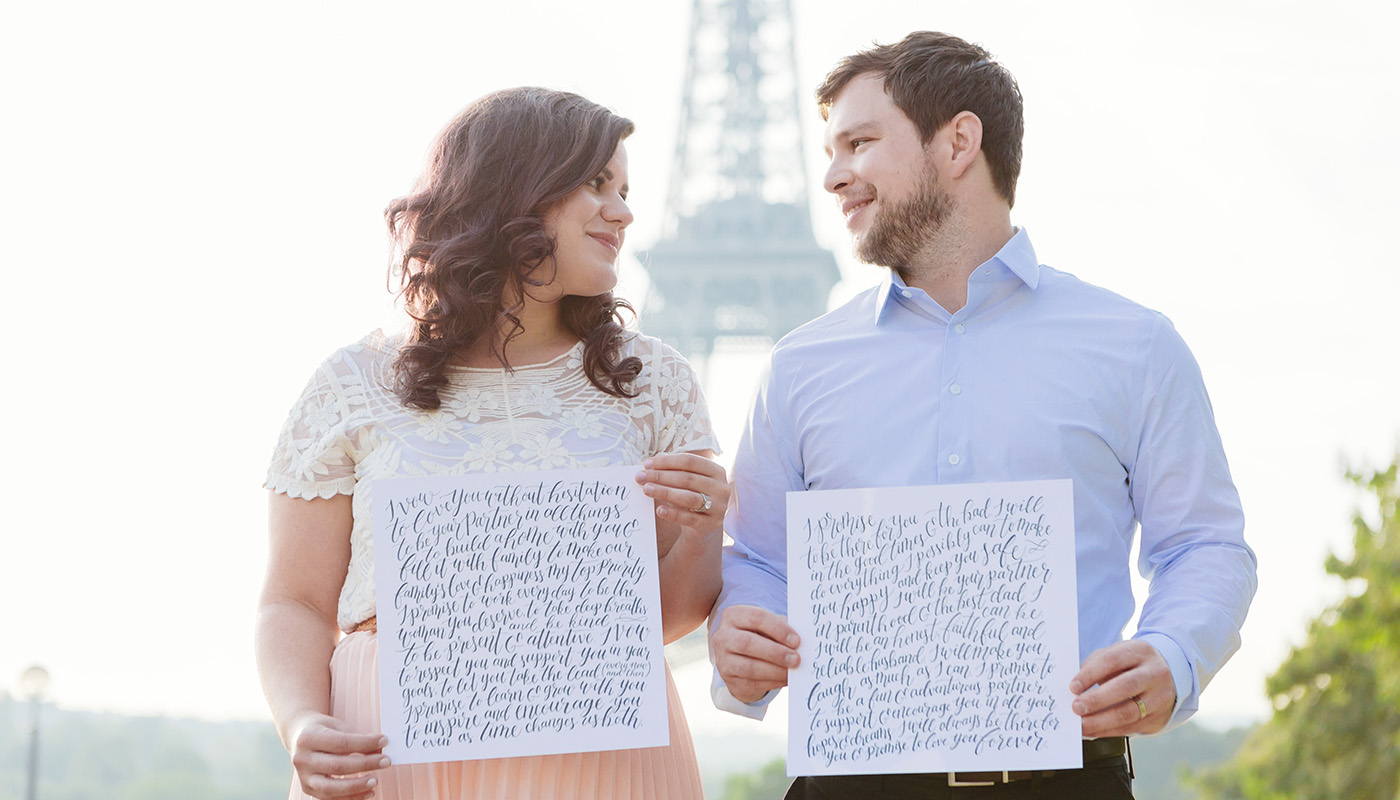 I vow you without hesitation
to love your partner in all things
to be to build a home with you &
fill it with family to make our
family's love & happiness my top priority
I promise to work every day to be the
woman you deserve to take deep breaths
and be kind
to be present & attentive I vow
to respect you and support you in your
goals to let you take the lead (every now and then)
I promise to learn & grow with you
to inspire and encourage you
to even as time changes us both.
I promise for you & the bad I will
to be there for good times & can to make
in the everything I possibly
do everything and keep you safe
you happy I will be your partner
in parenthood & the best dad I
will be an honest, faithful and can be
reliable husband. I will make you
laugh as much as I can. I promise to
be a fan & adventurous partner
to support & encourage you in all your
hopes & dreams. I will always be there for
you & promise to love you forever.